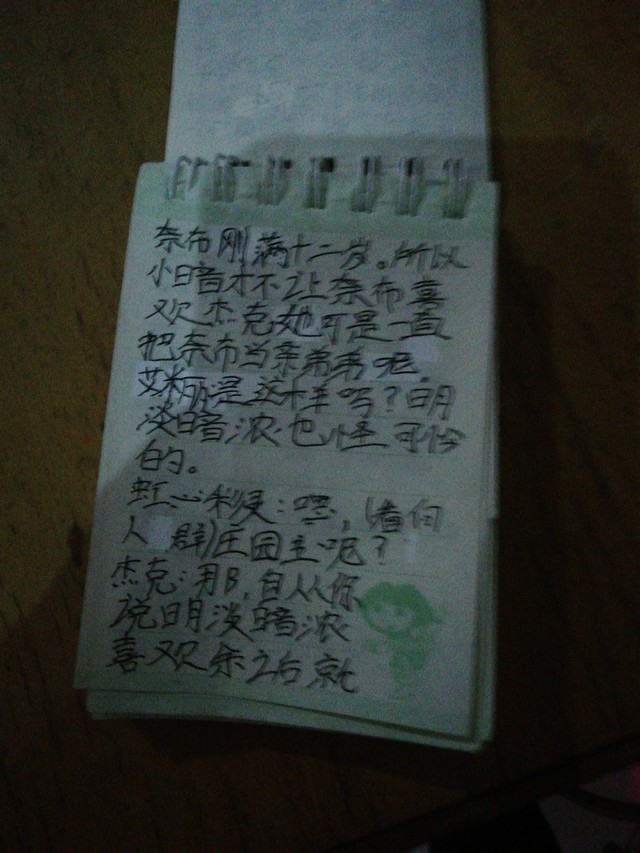 奈布刚满十二岁。所以
小暗才不让奈布喜
欢杰克她可是一直
把奈布当亲弟弟呢,
艾米丽是这样吗?明
淡暗浓也怪可怜
的。
虹心秋浸:嘿,(看向
人群)庄园主呢?
杰克:那,自从你
说明淡暗浓
喜欢余之后就